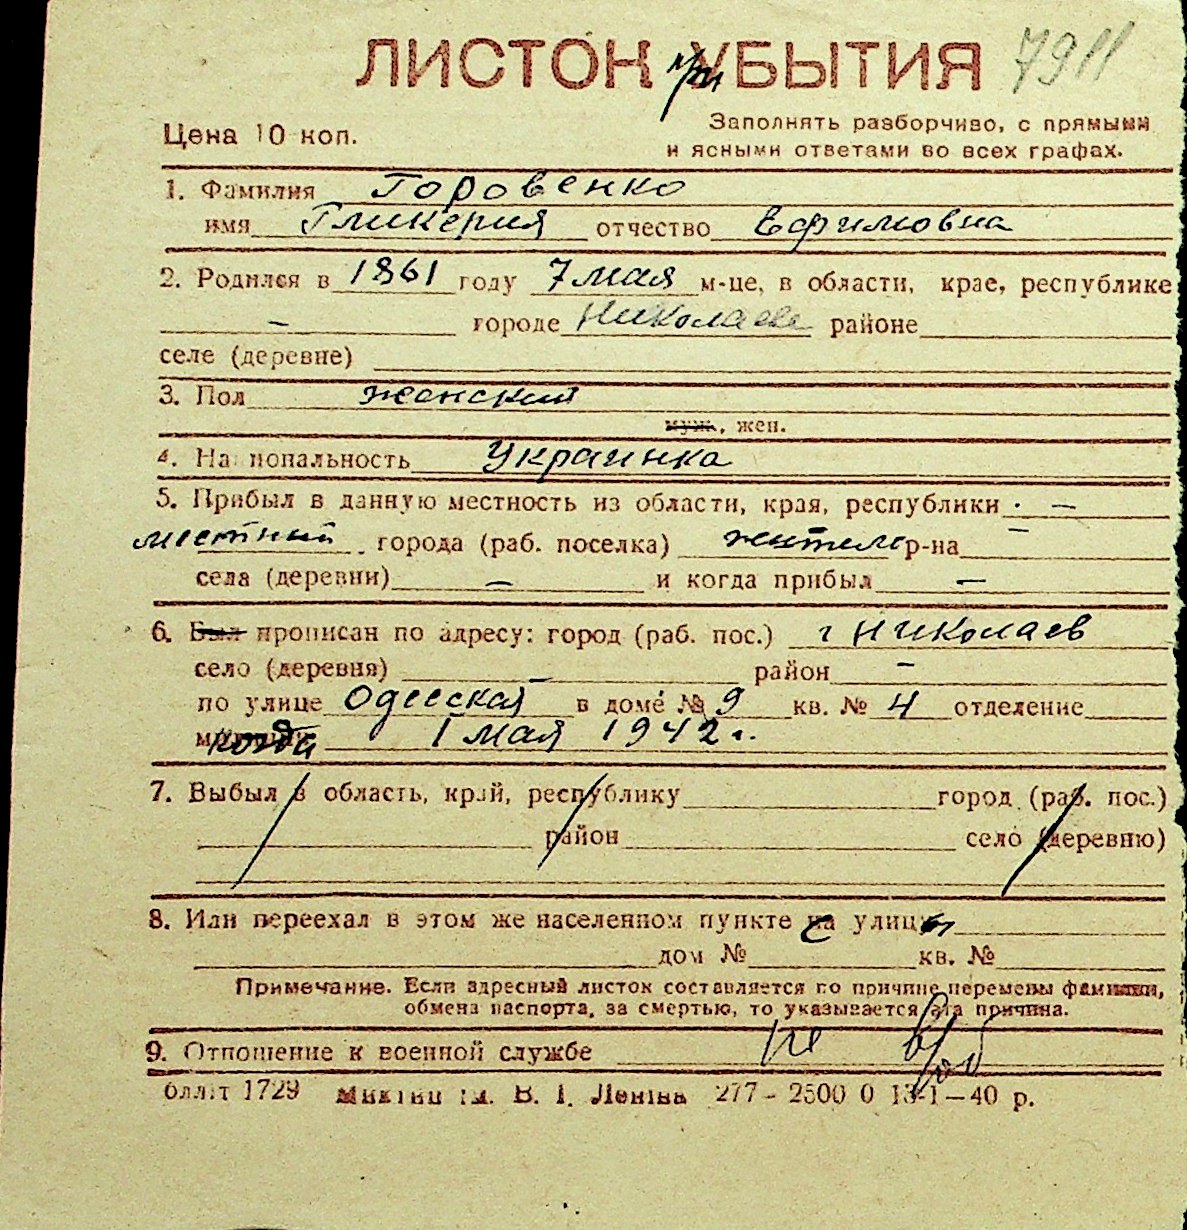 ЛИСТОК при УБЫТИЯ 7911
Цена 10 коп.
Заполнять разборчиво, с прямыми
и ясными ответами во всех графах.
1. Фамилия Горовенко
имя Гликерия отчество Ефимовна
2. Родился в 1861 году 7 мая м-це, в области, крае, республике
– городе Николаеве районе
селе (деревне)
3. Пол женский
муж., жен.
4. Национальность Украинка
5. Прибыл в данную местность из области, края, республики –
местный города (раб. поселка) житель р-на –
села (деревни) – и когда прибыл –
6. Был прописан по адресу: город (раб. пос.) г Николаев
село (деревня) – район –
по улице Одесская в доме № 9 кв. № 4 отделение
когда 1 мая 1942 г.
7. Выбыл в область, край, республику город (раб. пос.)
район село (деревню)
8. Или переехал в этом же населенном пункте с улицы
дом № кв. №
Примечание. Если адресный листок составляется по причине перемены фамилии,
обмена паспорта, за смертью, то указывается эта причина.
9. Отношение к военной службе не в/об
1729 ім. В. І. Леніна 277 – 2500 0 13-1–40 р.